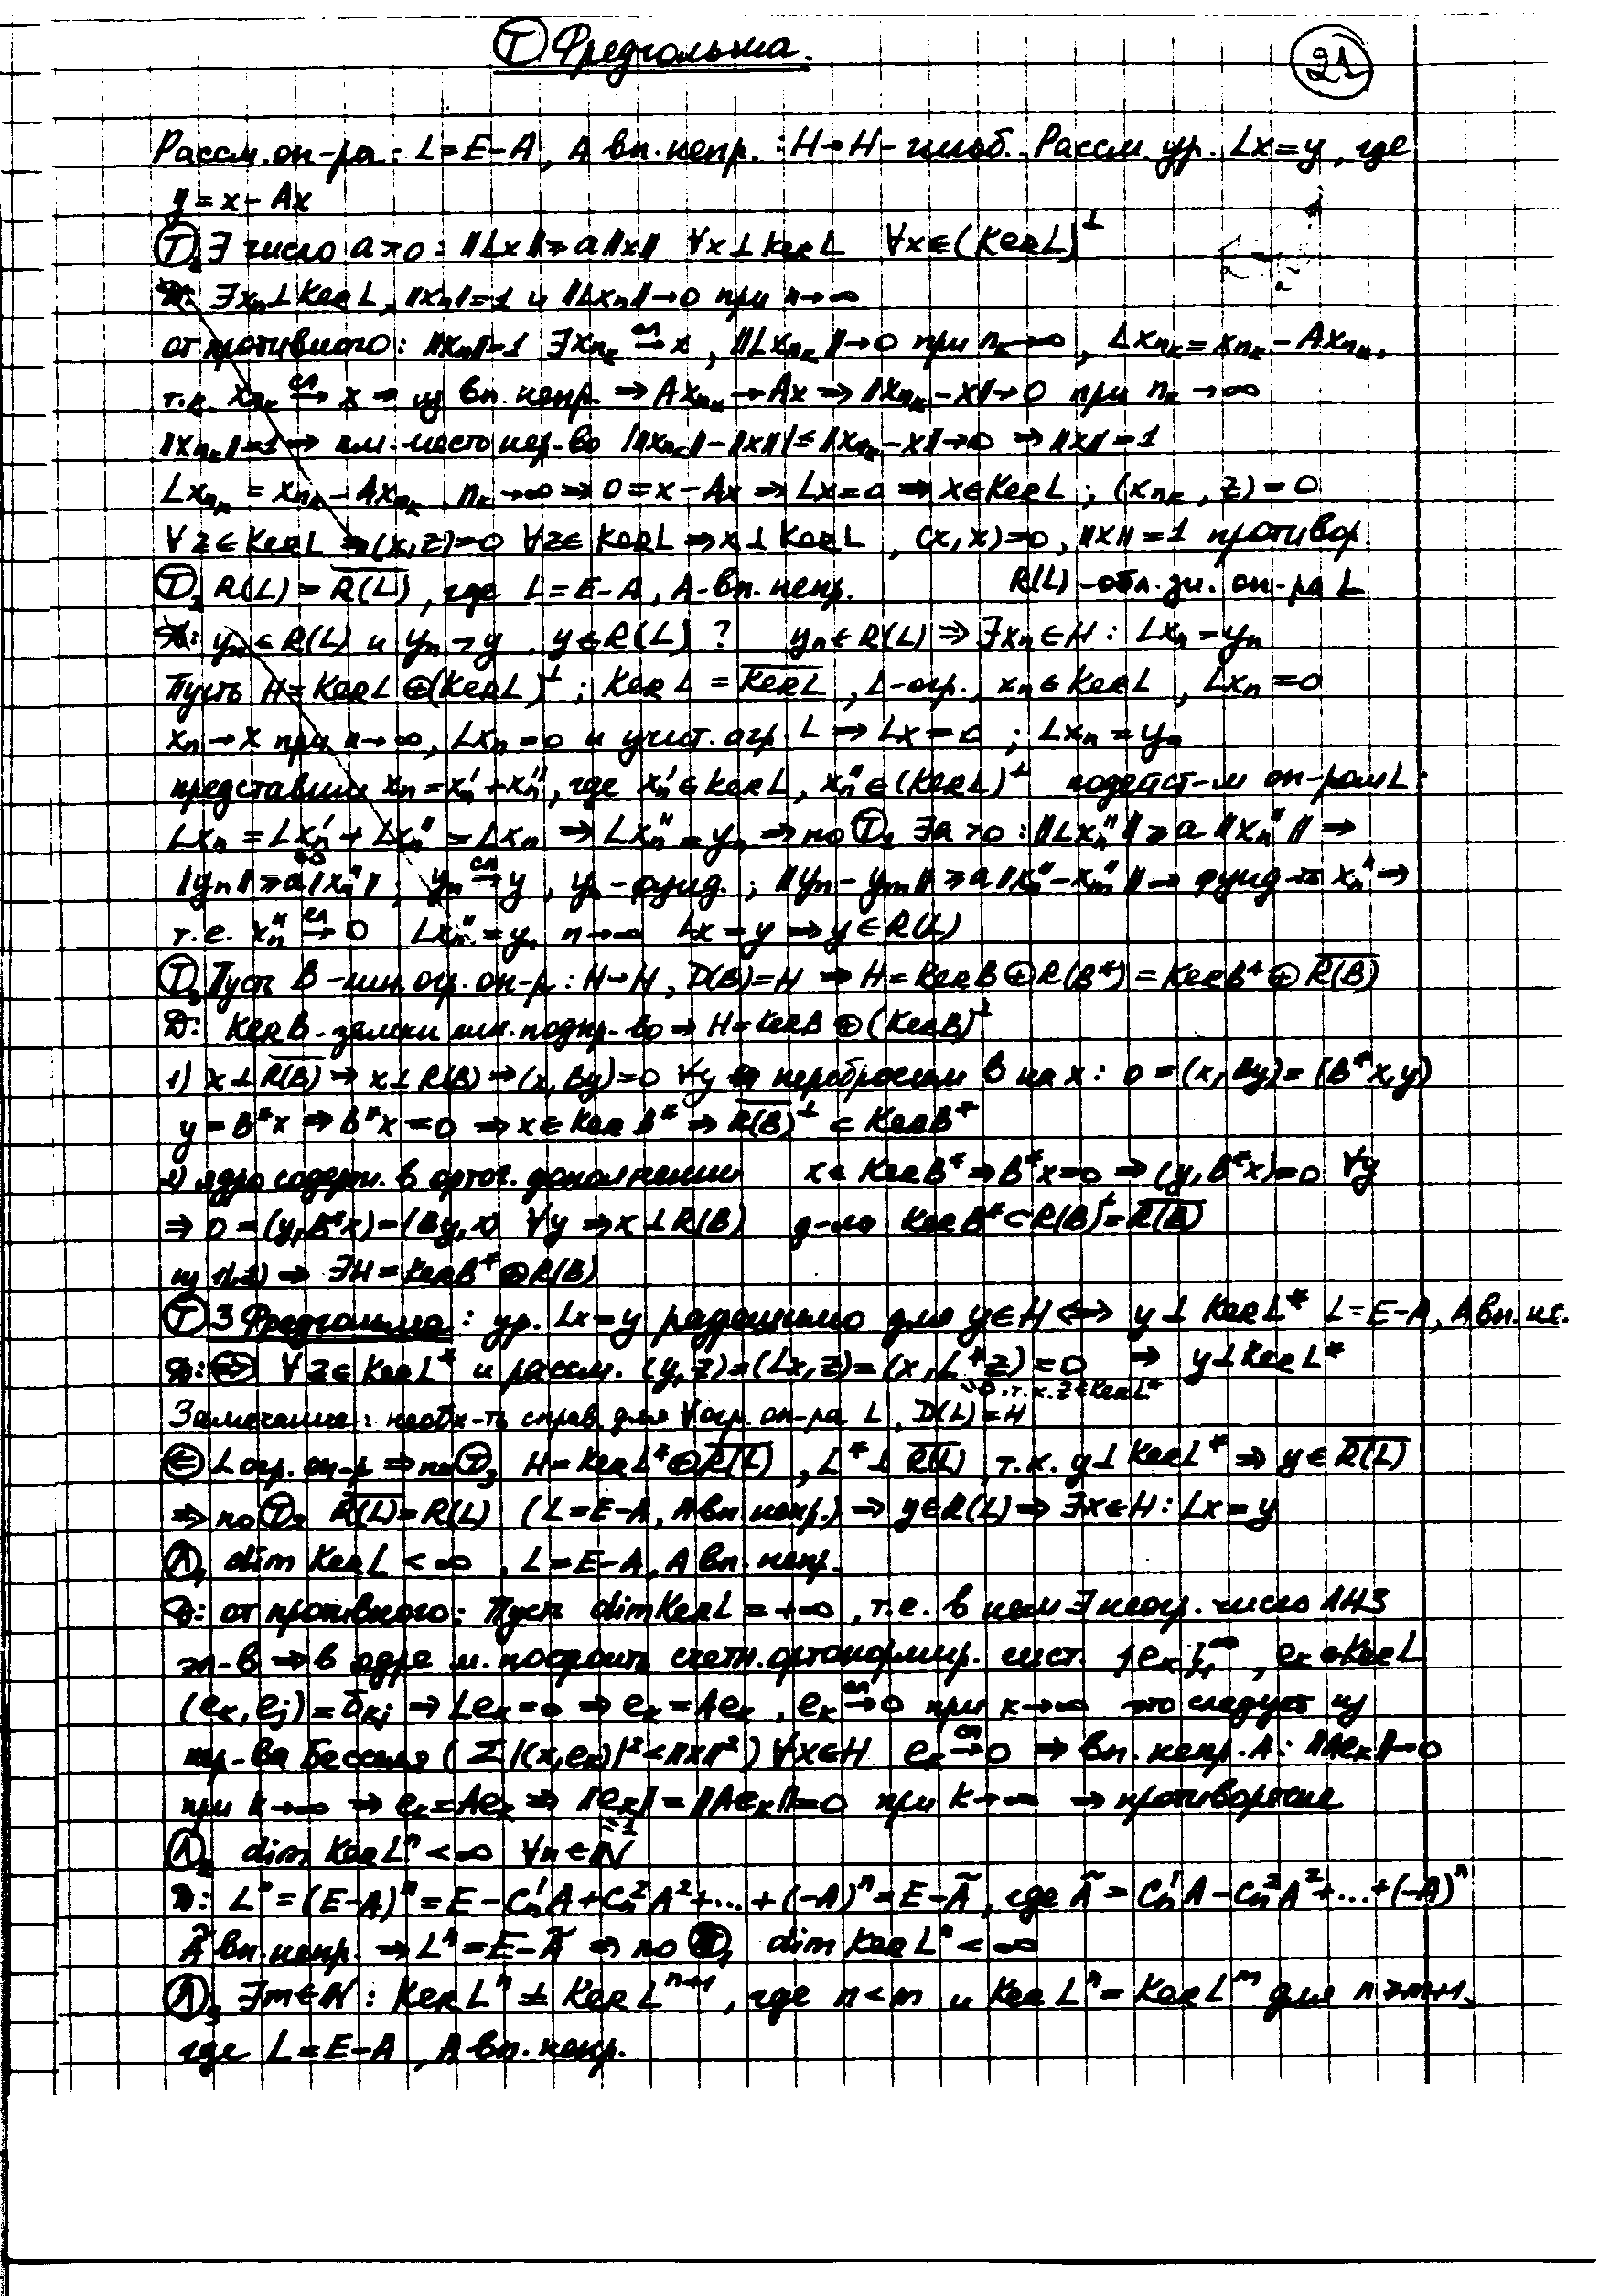 Ⓣ Фредгольма.
21
Рассм. оп-ра: L=E-A, A вп. непр. : H→H - гильб. Рассм. ур. Lx=y, где
y = x - Ax
Ⓣ₁ ∃ число a>0: ||Lx||≥a||x|| ∀x⊥KerL ∀x∈(KerL)^⊥
Д: ∃xₙ⊥KerL, ||xₙ||=1 и ||Lxₙ||→0 при n→∞
от противного: ||xₙ||=1 ∃xₙₖ →(сл) x, ||Lxₙₖ||→0 при nₖ→∞, Lxₙₖ=xₙₖ-Axₙₖ,
т.к. xₙₖ →(сл) x ⇒ из вп. непр. ⇒ Axₙₖ→Ax ⇒ ||xₙₖ-x||→0 при nₖ→∞
||xₙₖ||=1 ⇒ им. место нер-во |||xₙₖ||-||x|||≤||xₙₖ-x||→0 ⇒ ||x||=1
Lxₙₖ = xₙₖ-Axₙₖ, nₖ→∞ ⇒ 0=x-Ax ⇒ Lx=0 ⇒ x∈KerL ; (xₙₖ, z)=0
∀z∈KerL ⇒(x,z)=0 ∀z∈KerL ⇒ x⊥KerL, (x,x)=0, ||x||=1 противор.
Ⓣ₂ R(L)=\overline{R(L)}, где L=E-A, A-вп. непр. R(L)-обл. зн. оп-ра L
Д: yₙ∈R(L) и yₙ→y, y∈R(L)? yₙ∈R(L) ⇒ ∃xₙ∈H: Lxₙ=yₙ
Пусть H=KerL⊕(KerL)^⊥; KerL=\overline{KerL}, L-огр., xₙ∈KerL, Lxₙ=0
xₙ→x при n→∞, Lxₙ=0 и учит. огр. L ⇒ Lx=0 ; Lxₙ=yₙ
представим xₙ=xₙ'+xₙ'', где xₙ'∈KerL, xₙ''∈(KerL)^⊥ подейст-м оп-ром L:
Lxₙ = Lxₙ' + Lxₙ'' = Lxₙ ⇒ Lxₙ''=yₙ ⇒ по Ⓣ₁ ∃a>0: ||Lxₙ''||≥a||xₙ''|| ⇒
=0
||yₙ||≥a||xₙ''||; yₙ →(сл) y, yₙ-фунд.; ||yₙ-yₘ||≥a||xₙ''-xₘ''|| ⇒ фунд-ть xₙ'' ⇒
т.е. xₙ'' →(сл) 0 Lxₙ''=yₙ n→∞ Lx=y ⇒ y∈R(L)
Ⓣ₃ Пусть B-лин. огр. оп-р: H→H, D(B)=H ⇒ H=KerB⊕R(B*)=KerB*⊕\overline{R(B)}
Д: KerB-замкн. лин. подпр-во ⇒ H=KerB⊕(KerB)^⊥
1) x⊥\overline{R(B)} ⇒ x⊥R(B) ⇒ (x,By)=0 ∀y перебросим B на x: 0=(x,By)=(B*x,y)
y=B*x ⇒ B*x=0 ⇒ x∈KerB* ⇒ \overline{R(B)}^⊥ ⊂ KerB*
2) ядро содерж. в ортог. дополнении x∈KerB* ⇒ B*x=0 ⇒ (y,B*x)=0 ∀y
⇒ 0=(y,B*x)=(By,x) ∀y ⇒ x⊥R(B) д-ли KerB*⊂R(B)^⊥=\overline{R(B)}
из 1),2) ⇒ ∃H=KerB*⊕R(B)
Ⓣ 3 Фредгольма: ур. Lx=y разрешимо для y∈H ⇔ y⊥KerL* L=E-A, A вп. не.
Д: ⇒ ∀z∈KerL* и рассм. (y,z)=(Lx,z)=(x,L*z)=0 ⇒ y⊥KerL*
=0 т.к. z∈KerL*
Замечание: необх-ть справ. для ∀ огр. оп-ра L, D(L)=H
⇐ L огр. оп-р ⇒ по Ⓣ₃ H=KerL*⊕\overline{R(L)}, L*⊥\overline{R(L)}, т.к. y⊥KerL* ⇒ y∈\overline{R(L)}
⇒ по Ⓣ₂ \overline{R(L)}=R(L) (L=E-A, A вп. непр.) ⇒ y∈R(L) ⇒ ∃x∈H: Lx=y
Ⓛ₁ dim KerL<∞, L=E-A, A вп. непр.
Д: от противного: Пусть dim KerL=+∞, т.е. в нем ∃ неогр. число ЛНЗ
эл-в ⇒ в ядре м. построить счетн. ортонормир. сист. {eₖ}₁^∞, eₖ∈KerL
(eₖ,eⱼ)=δₖⱼ ⇒ Leₖ=0 ⇒ eₖ=Aeₖ, eₖ →(сл) 0 при k→∞ это следует из
нер-ва Бесселя (Σ|(x,eₖ)|²<||x||²) ∀x∈H eₖ →(сл) 0 ⇒ вп. непр. A: ||Aeₖ||→0
при k→∞ ⇒ eₖ=Aeₖ ⇒ ||eₖ||=||Aeₖ||=0 при k→∞ ⇒ противоречие
=1
Ⓛ₂ dim KerLⁿ<∞ ∀n∈N
Д: Lⁿ=(E-A)ⁿ=E-Cₙ¹A+Cₙ²A²+...+(-A)ⁿ=E-Ã, где Ã=Cₙ¹A-Cₙ²A²+...+(-A)ⁿ
Ã вп. непр. ⇒ Lⁿ=E-Ã ⇒ по Ⓛ₁ dim KerLⁿ<∞
Ⓛ₃ ∃m∈N: KerLⁿ≠KerLⁿ⁺¹, где n<m и KerLⁿ=KerLᵐ для n≥m+1,
где L=E-A, A вп. непр.